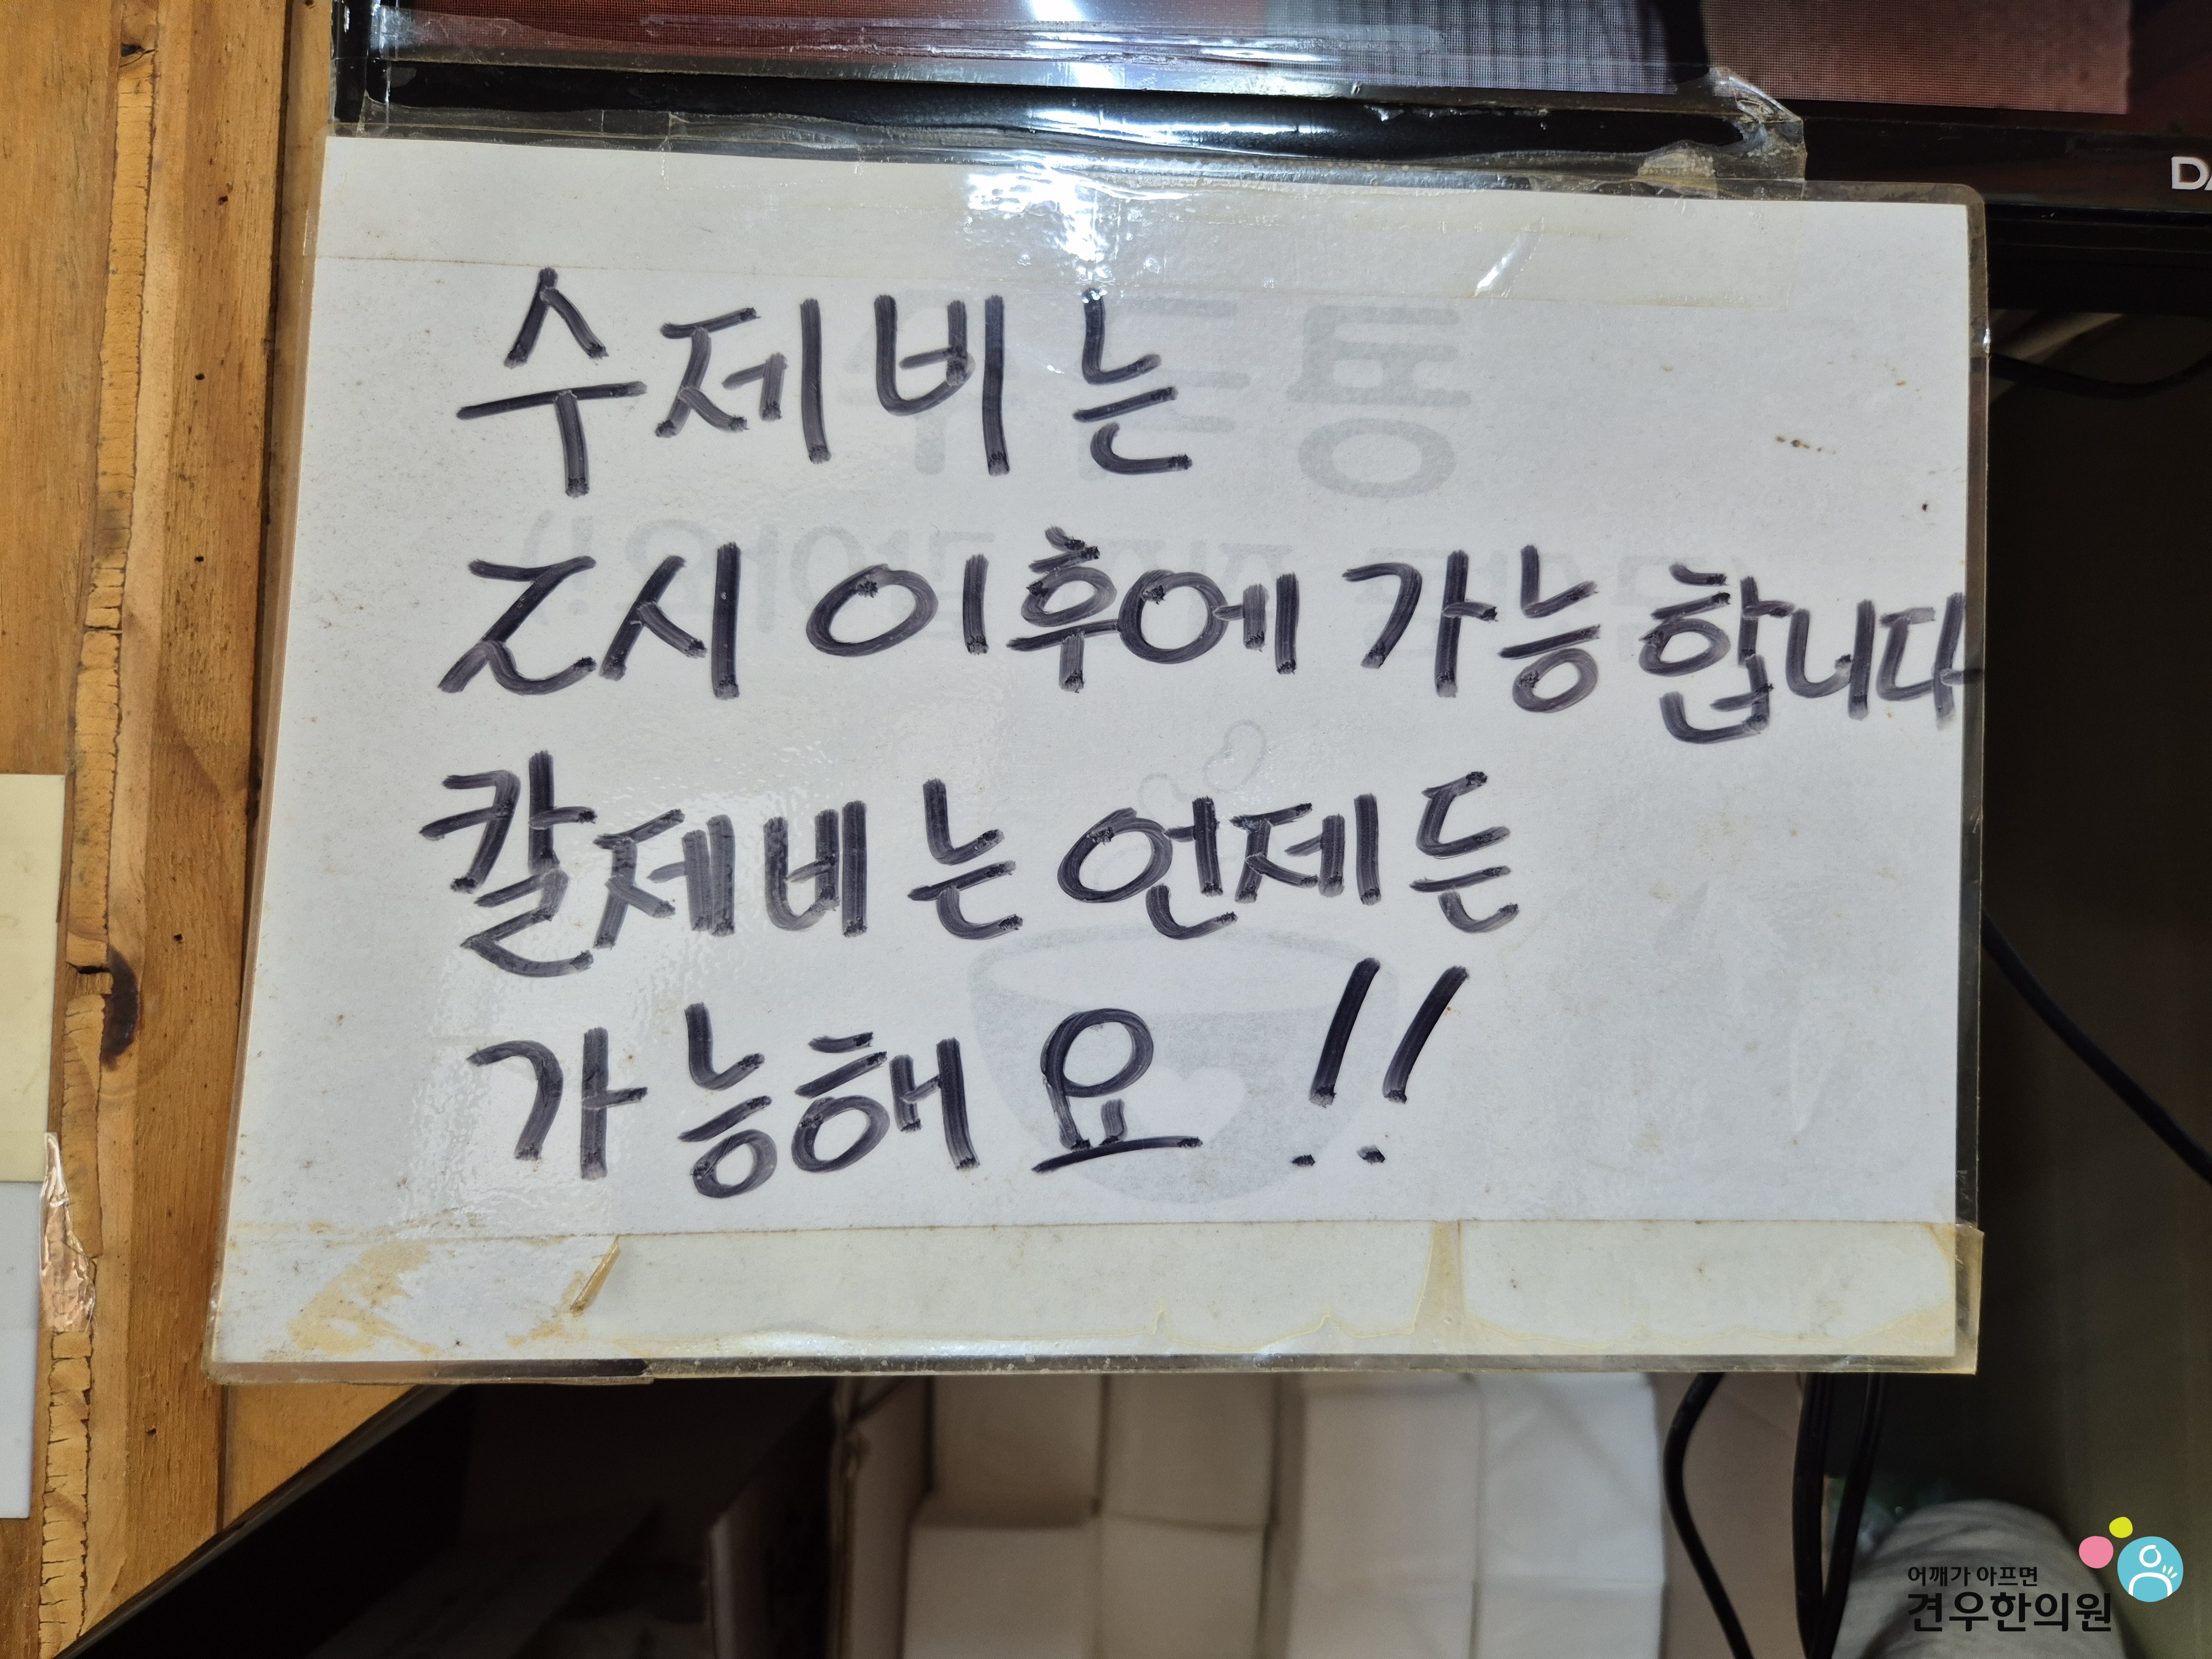 수제비는
2시 이후에 가능합니다
칼제비는 언제든
가능해요!!
어깨가 아프면
견우한의원